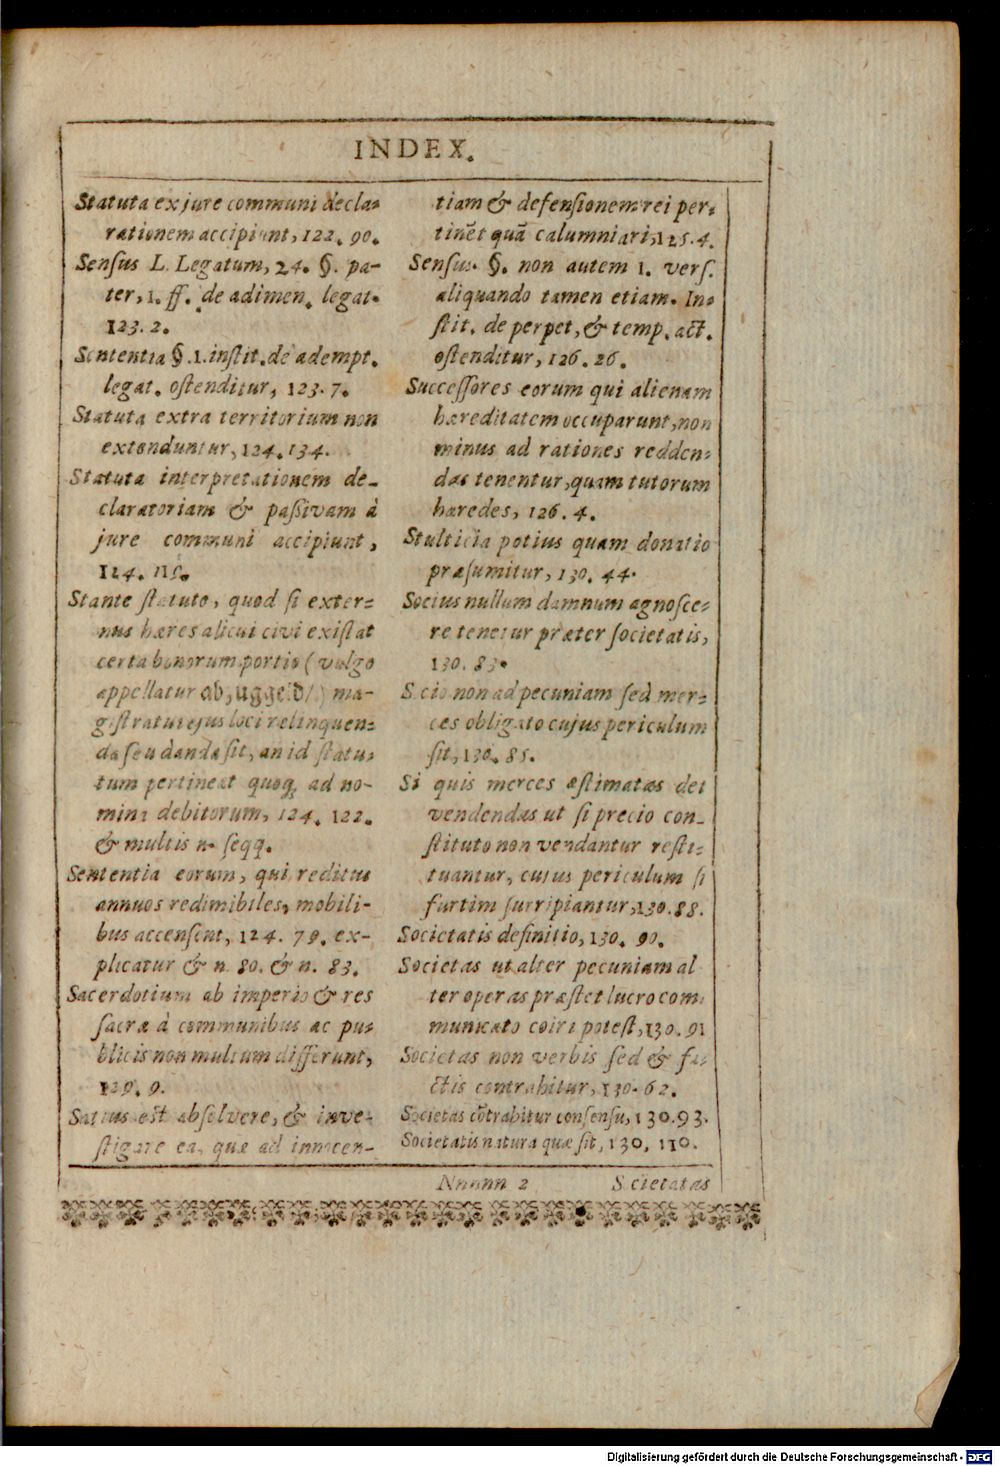 INDEX.
Statuta ex jure communi decla-
rationem accipiunt, 122. 90.
Sensus L. Legatum, 24. §. pa-
ter, 1. ff. de adimen. legat.
123. 2.
Sententia §. 1. instit. de adempt.
legat. ostenditur, 123. 7.
Statuta extra territorium non
extenduntur, 124. 134.
Statuta interpretationem de-
claratoriam & passivam à
jure communi accipiunt,
124. 115.
Stante statuto, quod si exter-
nus hæres alicui civi existat
certa bonorum portio (vulgo
appellatur abzuggeld/) ma-
gistratui ejus loci relinquen-
da seu danda sit, an id statu-
tum pertineat quoq; ad no-
mina debitorum, 124. 122.
& multis n. seqq.
Sententia eorum, qui reditus
annuos redimibiles, mobili-
bus accensent, 124. 79. ex-
plicatur & n. 80. & n. 83.
Sacerdotium ab imperio & res
sacræ à communibus ac pu-
blicis non multum differunt,
129. 9.
Satius est absolvere, & inve-
stigare ea, quæ ad innocen-
tiam & defensionem rei per-
tinẽt quã calumniari, 125. 4.
Sensus §. non autem 1. vers.
aliquando tamen etiam. In-
stit. de perpet, & temp. act.
ostenditur, 126. 26.
Successores eorum qui alienam
hæreditatem occuparunt, non
minus ad rationes redden-
das tenentur, quam tutorum
hæredes, 126. 4.
Stulticia potius quam donatio
præsumitur, 130. 44.
Socius nullum damnum agnosce-
re tenetur præter societatis,
130. 83.
Socio non ad pecuniam sed mer-
ces obligato cujus periculum
sit, 130. 85.
Si quis merces æstimatas det
vendendas ut si precio con-
stituto non vendantur resti-
tuantur, cujus periculum si
furtim surripiantur, 130. 88.
Societatis definitio, 130. 90.
Societas ut alter pecuniam al
ter operas præstet lucro com-
municato coiri potest, 130. 91
Societas non verbis sed & fa-
ctis contrahitur, 130. 62.
Societas cõtrahitur consensu, 130. 93.
Societatis natura quæ sit, 130. 110.
Nnnnn 2 Societatas
Digitalisierung gefördert durch die Deutsche Forschungsgemeinschaft - DFG